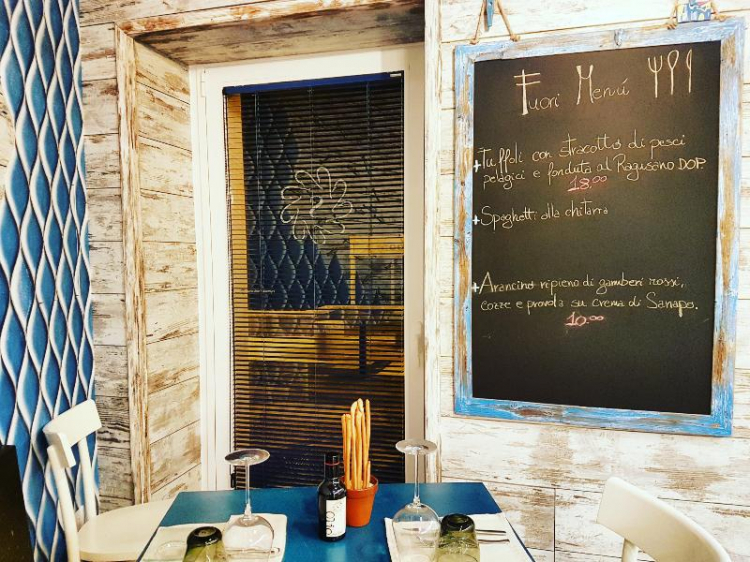 Fuori Menú
+ Tuffoli con stracotto di pesci
pelagici e fonduta al Ragusano DOP
18.00
+ Spaghetti alla chitarra
+ Arancino ripieno di gamberi rossi,
cozze e provola su crema di Sanapo.
10.00